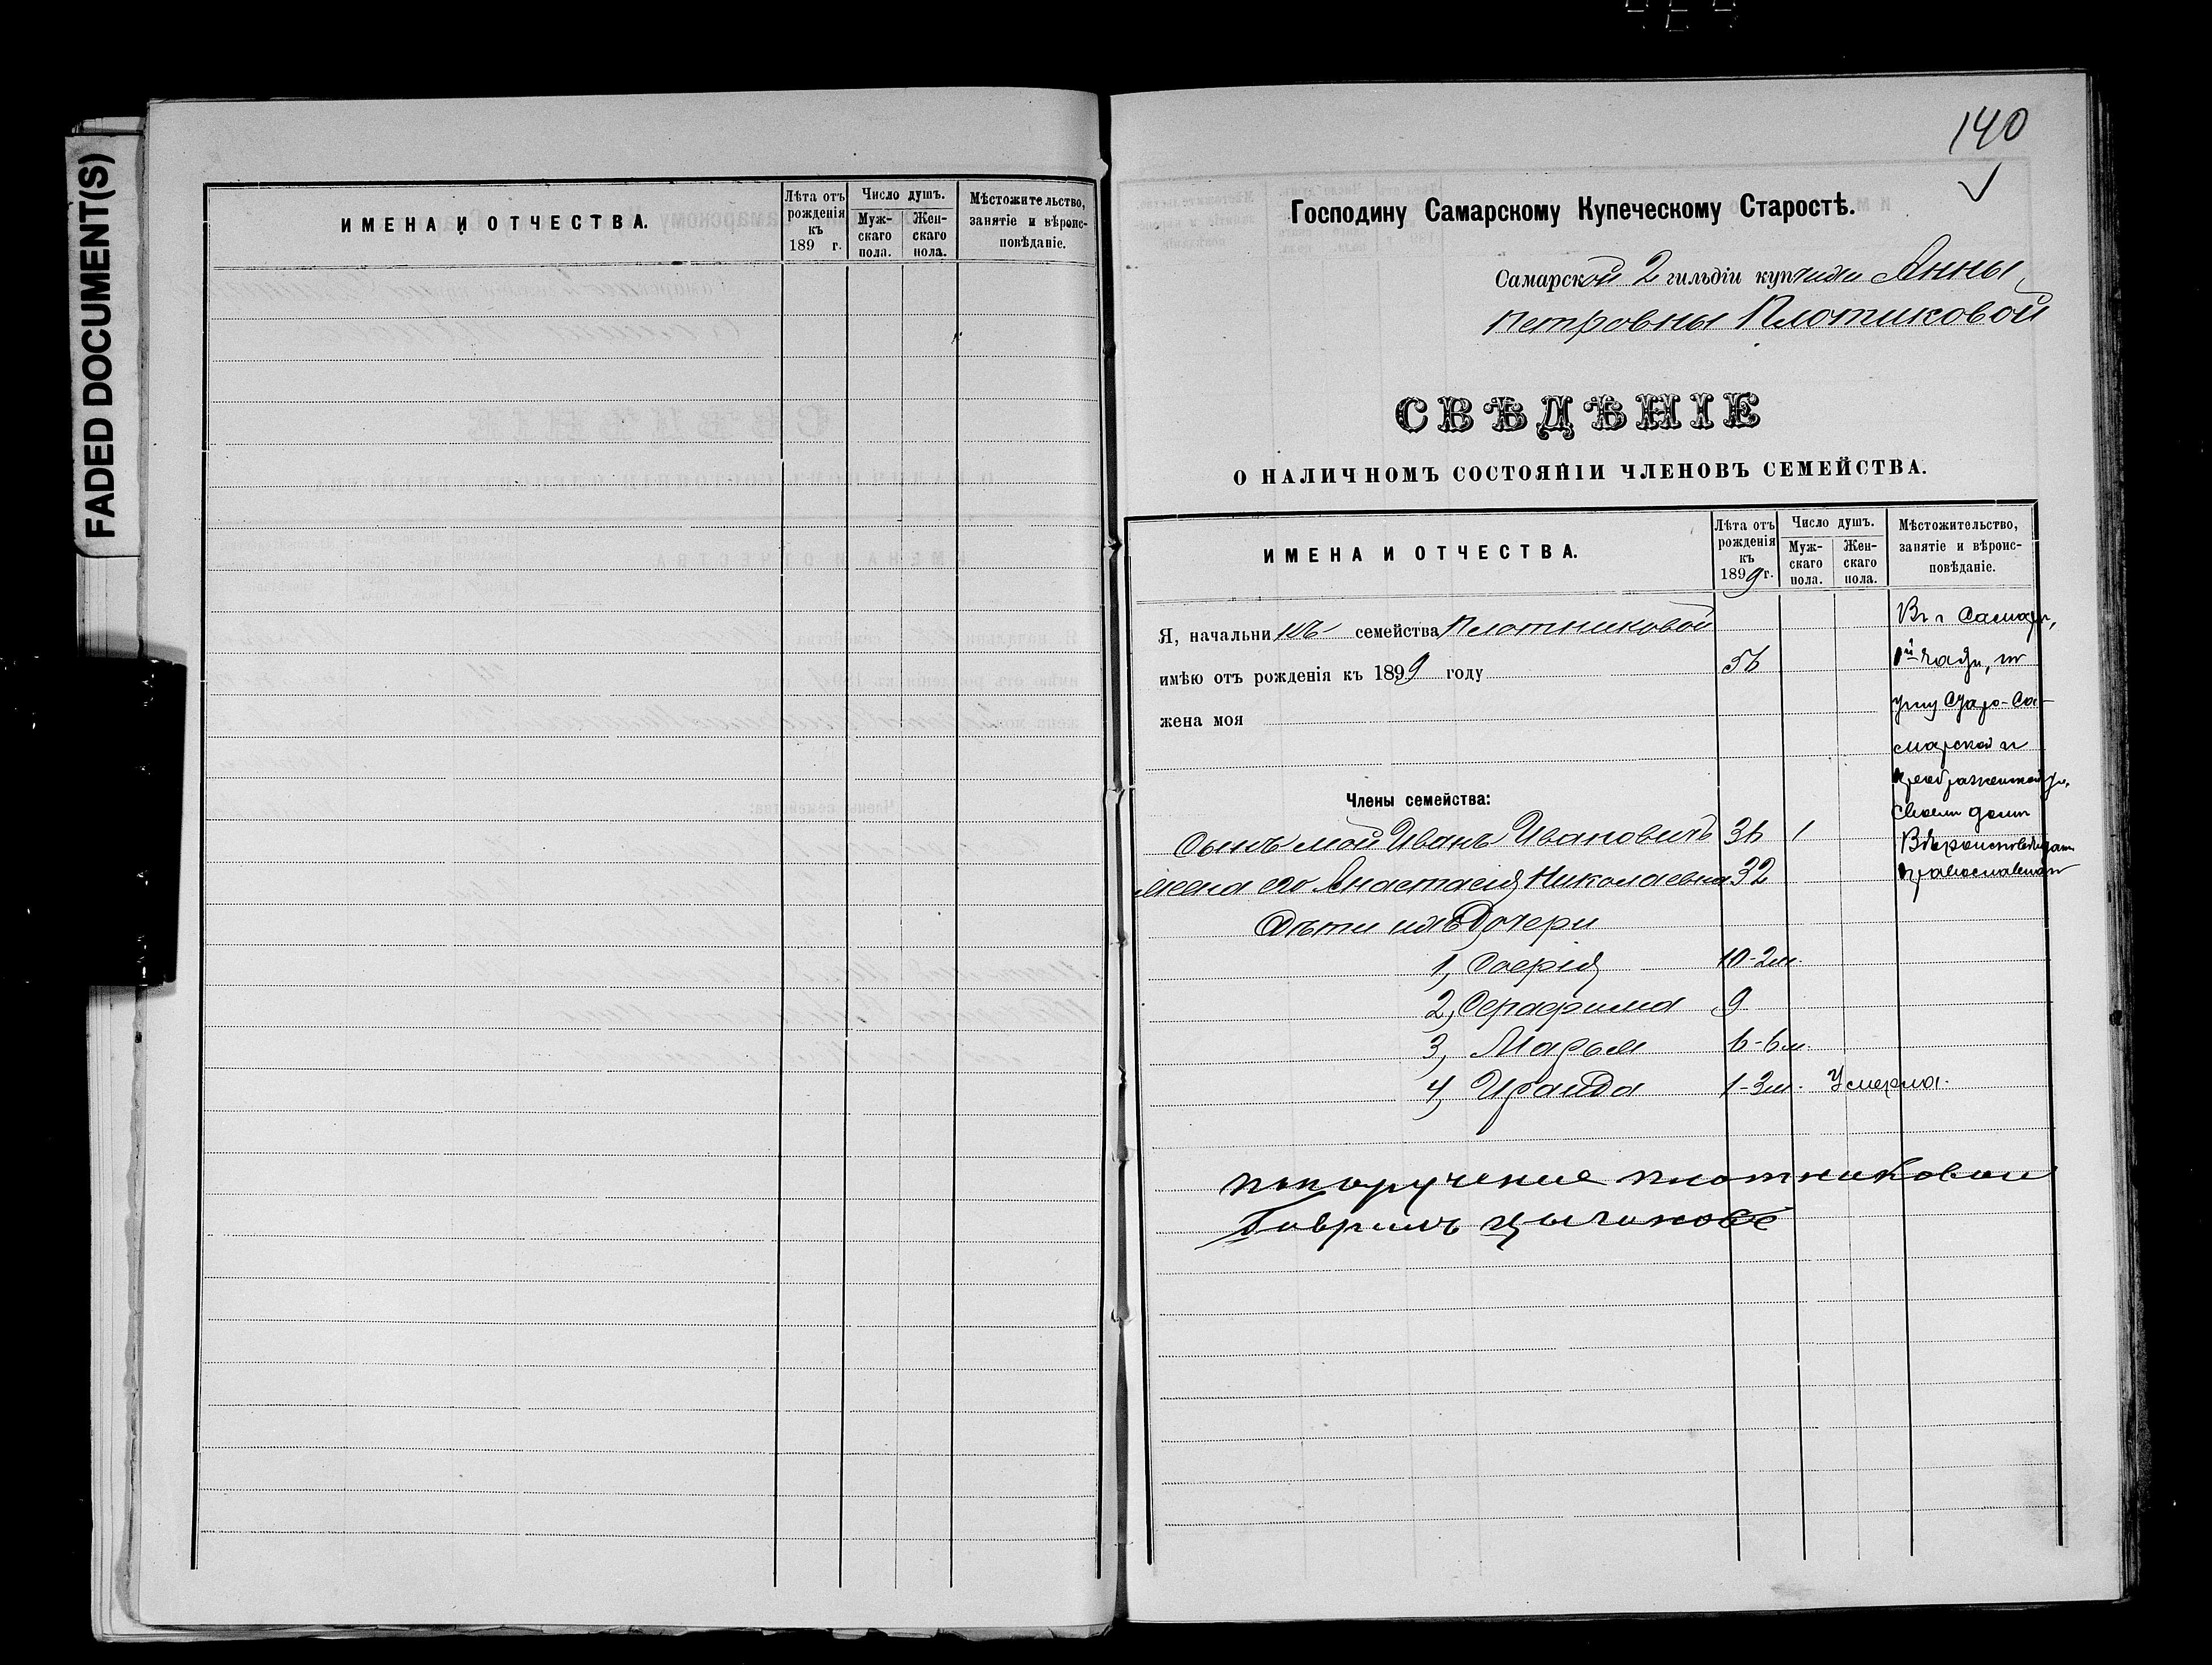 FADED DOCUMENT(S)
ИМЕНА И ОТЧЕСТВА.
Лѣта отъ рожденія къ 189 г.
Число душъ.
Муж- скаго пола.
Жен- скаго пола.
Мѣстожительство, занятіе и вѣроис- повѣданіе.
140
Господину Самарскому Купеческому Старостѣ.
Самарской 2 гильдіи купчихи Анны
Петровны Плотиковой
СВѢДѢНІЕ
О НАЛИЧНОМЪ СОСТОЯНІИ ЧЛЕНОВЪ СЕМЕЙСТВА.
ИМЕНА И ОТЧЕСТВА.
Лѣта отъ рожденія къ 1899 г.
Число душъ.
Муж- скаго пола.
Жен- скаго пола.
Мѣстожительство, занятіе и вѣроис- повѣданіе.
Я, начальникъ семейства Плотниковой
имѣю отъ рожденія къ 1899 году 56
жена моя
Въ г Самарѣ,
1й части, на
углу Старо-Са-
марской и
преображенской ул.
своемъ домѣ
православнаго
Члены семейства:
Сынъ мой Иванъ Ивановичъ 36 1
жена его Анастасія Николаевна 32
Дѣти ихъ Дочери
1, Софія 10-2м.
2, Серафима 9
3, Марья 6-6м.
4, Ираида 1-3м. Умерла.
По поручение плотниковой
Гаврилъ цыгановъ